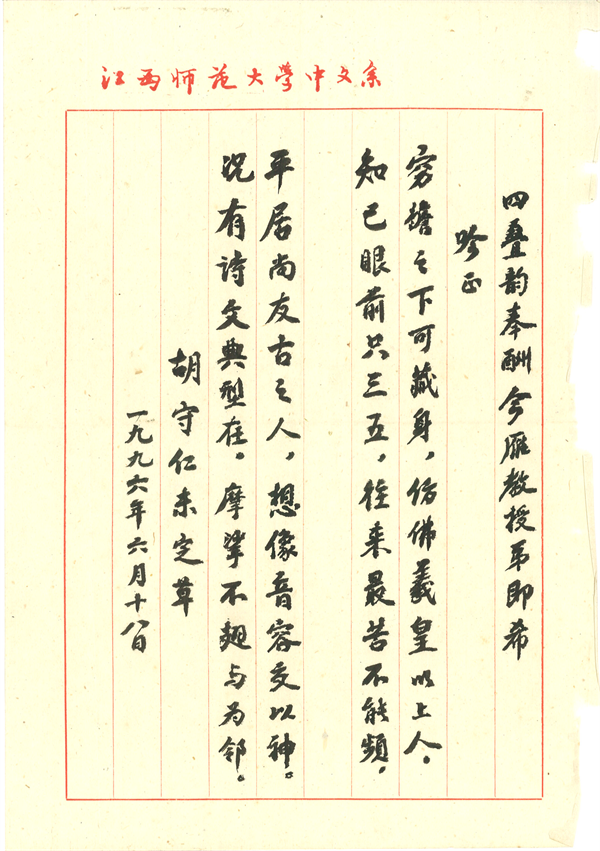 江西师范大学中文系
四叠韵奉酬今雁教授弟即希
吟正
穷檐之下可藏身，仿佛羲皇以上人。
知己眼前只三五，往来最苦不能频，
平居尚友古之人，想像音容交以神。
况有诗文典型在。摩挲不翅与为邻。
胡守仁未定草
一九九六年六月十八日